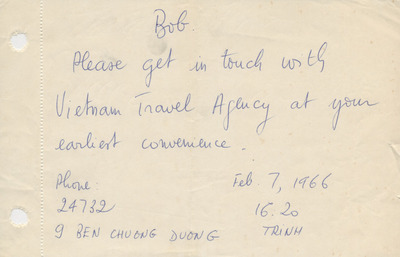 Bob.
Please get in touch with
Vietnam Travel Agency at your
earliest convenience.
Phone: Feb. 7, 1966
24732 16.20
9 BEN CHUONG DUONG TRINH